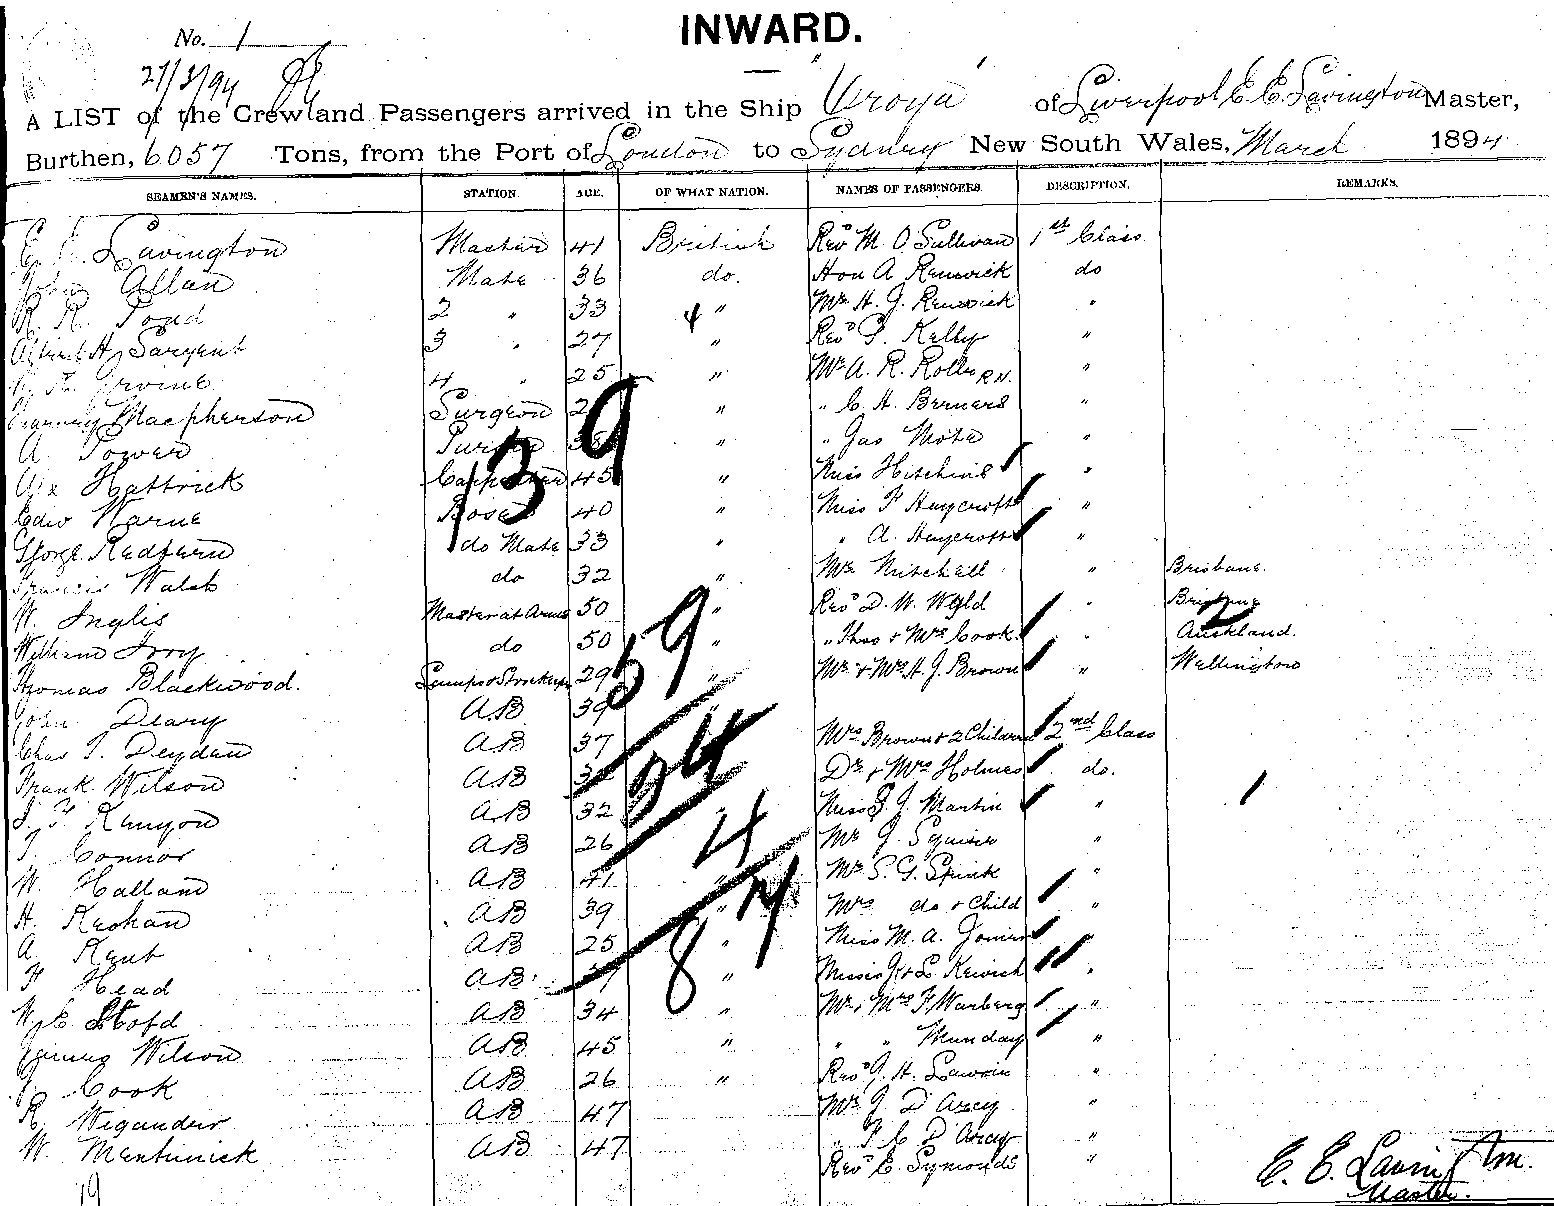 INWARD.
No. 1
27/3/94
A LIST of the Crew and Passengers arrived in the Ship Oroya of Liverpool E. E. Lavington Master,
Burthen, 6057 Tons, from the Port of London to Sydney New South Wales, March 1894
SEAMEN'S NAMES. STATION. AGE. OF WHAT NATION. NAMES OF PASSENGERS. DESCRIPTION. REMARKS.
E. E. Lavington Master 41 British Revd M. O'Sullivan 1st Class
John Allan Mate 36 do. Hon A Renwick do
R. R. Pond 2 " 33 " Mr H. J. Renwick "
Albert H. Sargent 3 " 27 " Revd P. Kelly "
Irvine 4 " 25 " Mr A. R. R.N. "
Macpherson Surgeon " " C. H. Berners "
A Power Purser " " Jas Mote "
Alx Hattrick Carpenter 45 " Miss Hitchins "
Edw Warne Bosn 40 " Miss F Haycroft "
George Redfern do Mate 33 " " A. Haycroft "
Francis Walsh do 32 " Mr Mitchell " Brisbane.
W. Inglis Master at Arms 50 " Revd D. W. Wyld " Brisbane
William Ivory do 50 " " Thos & Mrs Cook " Auckland.
Thomas Blackwood. Lamps & Storekeeper 29 " Mr & Mrs H. J. Brown " Wellington
John Deary AB 39 "
Chas T. Deydan AB 37 Mrs Brown & 2 Children 2nd Class
Frank Wilson AB Dr & Mrs Holmes do.
Kenyon AB 32 " Miss J. Martin "
T. Connor AB 26 Mr J Squires "
W. Halland AB 41 " Mr S. G. Spink "
H. Keohan AB 39 " Mrs do & Child "
A Kent AB 25 " Miss M. A. Jones "
F Head AB " Misses J & L "
W. E. AB 34 " Mr & Mrs F Warberg "
James Wilson AB 45 " " " Munday "
Cook AB 26 " Revd J. H. "
R. Wigander AB 47 Mr J D'Arcy "
W. AB 47 " F C D'Arcy "
Revd E. Symonds "
139
59
24
4
87
2
1
E. E. Lavington.
Master.
19